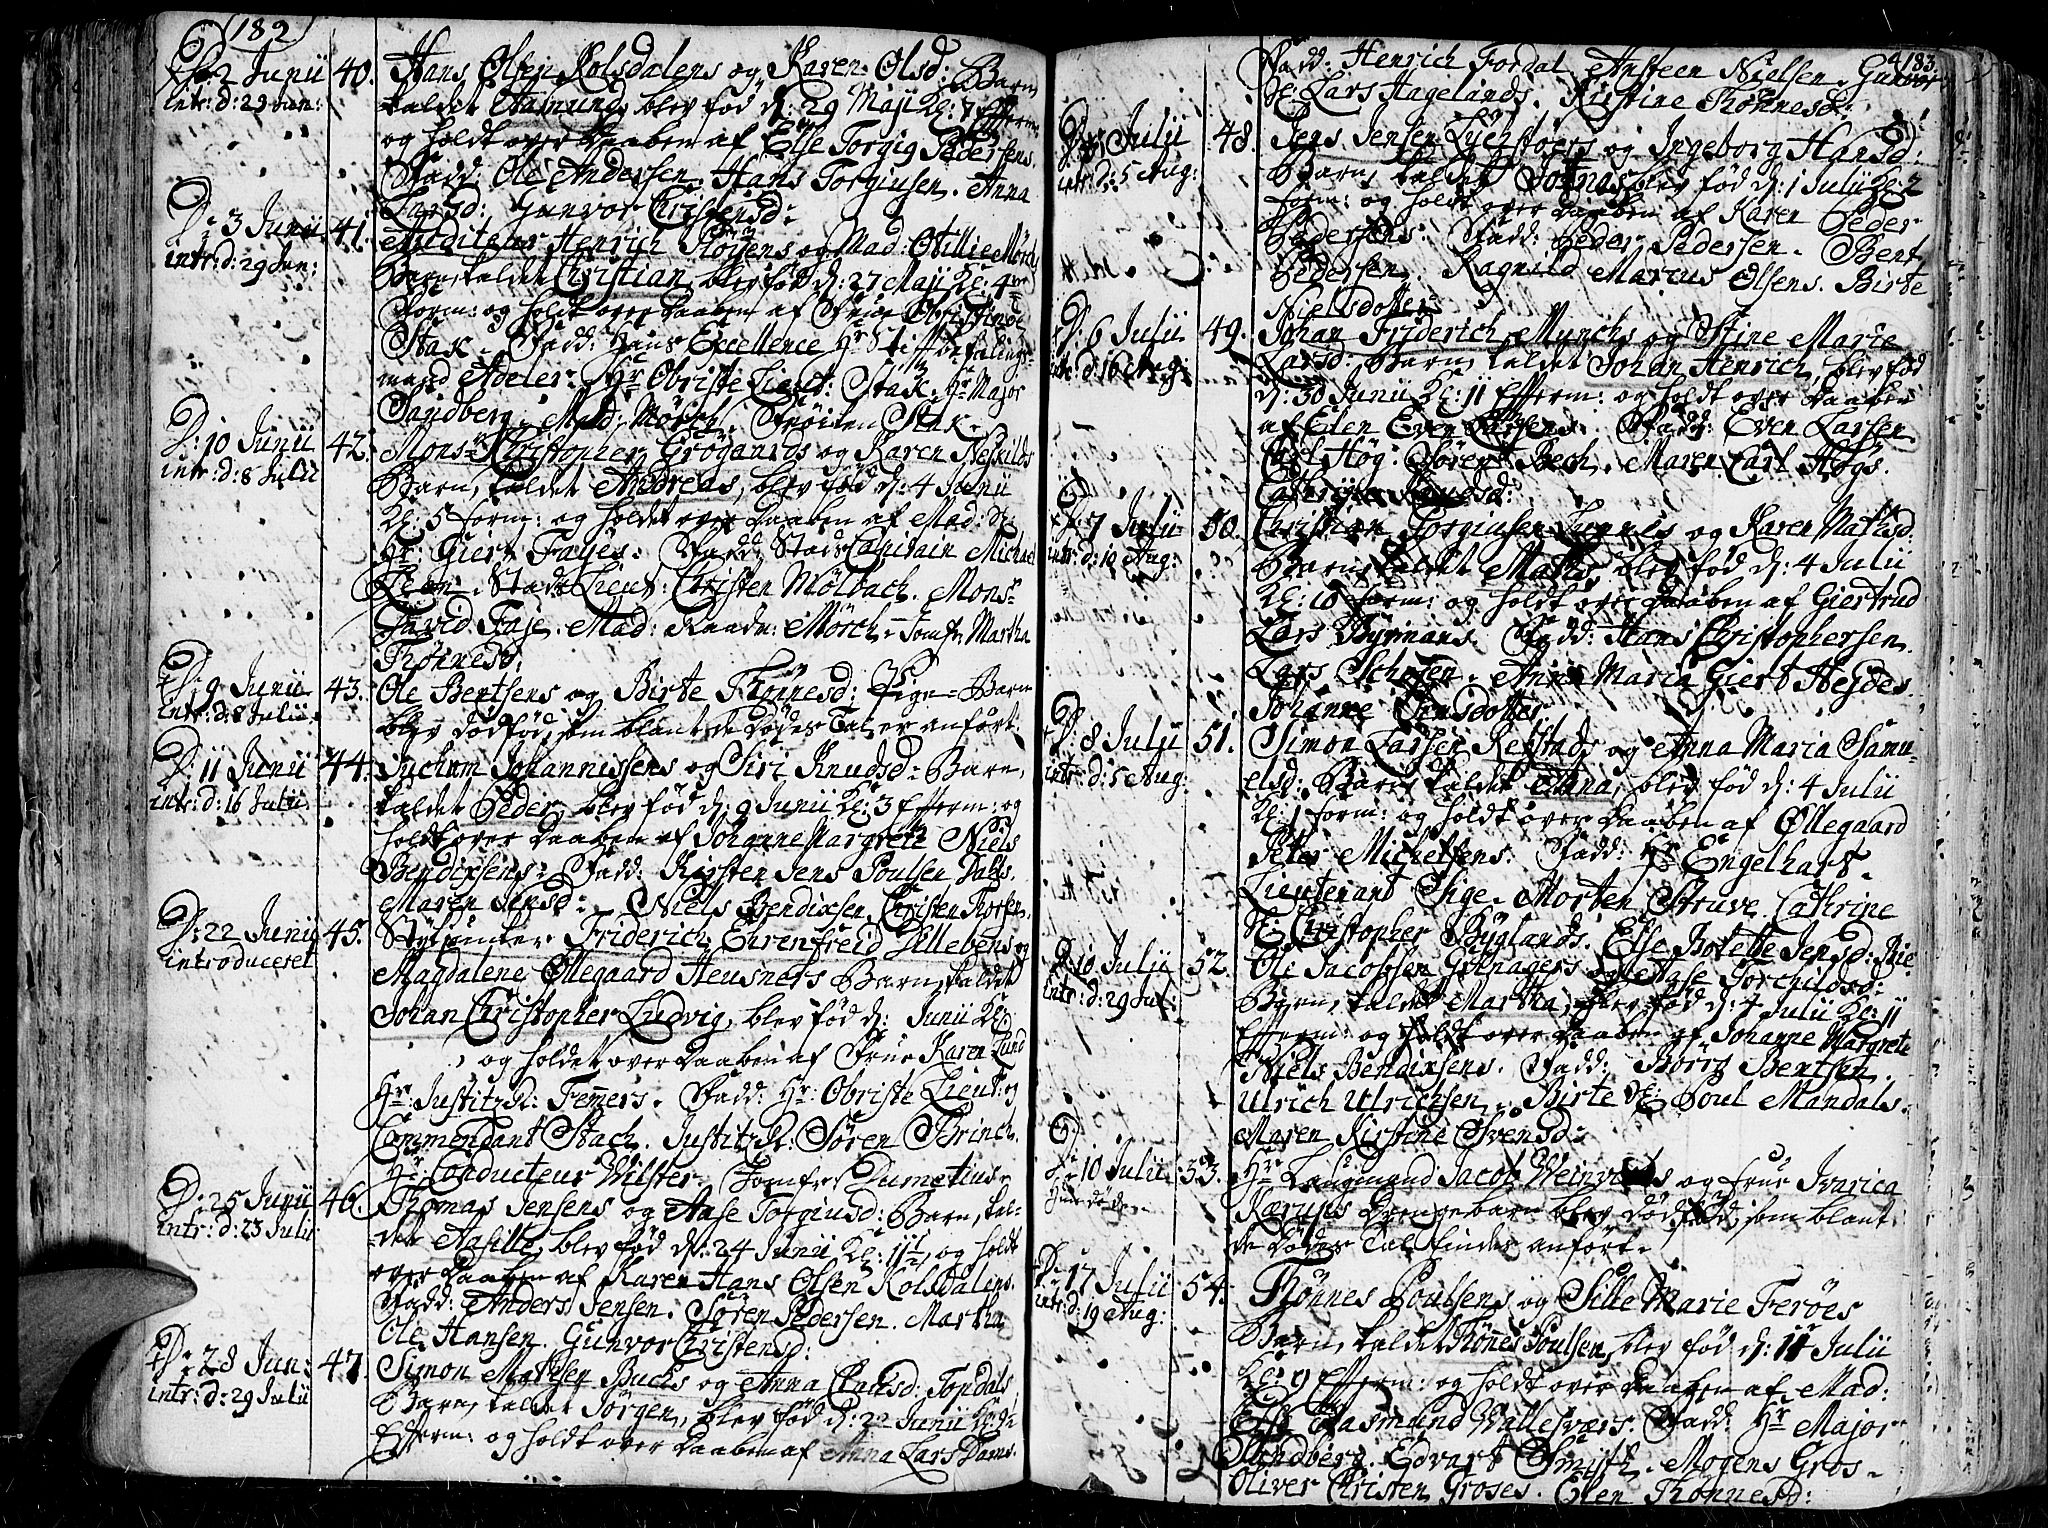 182
D: 2 Junii
intr: d: 29 Jun:
40.
Hans Olsen Kolsdalens og Karen Olsd: Barn
kaldet Aasmund, blev fød d: 29 Maji Kl: 7 Efterm:
og holdt over Daaben af Else Torgig Pedersens.
Fadd: Ole Andersen. Hans Torgiusen. Anna
Larsd: Gunvor Christensd:
D: 3 Junii
intr: d: 29 Jun:
41.
Auditeur Henrich Tøijens og Mad: Ottillie Mørchs
Barn, kaldet Christian, blev fød d: 27 Maji Kl: 4
Form: og holdt over Daaben af Frue Obristinde
Stax. Fadd: Hans Excellence Hr: Stiftbefalings-
mand Adeler. Hr Obriste Lieut: Stax. Hr Major
Sandberg. Mad: Mørch. Frøiken Stax.
D: 10 Junii
intr: d: 8 Julii
42.
Monsr Christopher Grøgaards og Karen Neskilds
Barn, kaldet Andreas, blev fød d: 4 Junii
Kl: 5 form: og holdet over Daaben af Mad: Sl:
Hr: Giert Fayes. Fadd: Stads Capitain Michael
Leon. Stads Lieut: Christen Mølbach. Mons:
David Faje. Mad: Raadm: Mørch. Jomfr: Martha
Thønnesd:
D: 9 Junii
intr: d: 8 Julii
43.
Ole Bentsens og Birte Thønnesd: Pige-Barn
blev dødfød, som blant de Dødes Tal er anført.
D: 11 Junii
intr: d: 16 Julii
44.
Juchum Johannissens og Siri Knudsd: Barn,
kaldet Peder, blev fød d: 9 Junii Kl: 3 Efterm: og
holdt over Daaben af Johanne Margrete Niels
Bendixsens. Fadd: Kirsten Jens Poulsen Dahls.
Maren Jensd: Niels Bendixsen. Christen Thorsen.
D: 22 Junii
introduceret
45.
Stykjunker Friderich Ehrenfreid Tillebens og
Magdalene Øllegaard Heusners Barn, kaldet
Johan Christopher Ludvig, blev fød d: Junii Kl:
og holdet over Daaben af Frue Karen Lund
Hr: Justitz R: Femmers. Fadd: Hr: Obriste Lieut: og
Commendant Stach. Justitz R: Søren Brinch.
Hr: Conducteur Wilster. Jomfr: Dumetius.
D: 25 Junii
intr: d: 23 Julii
46.
Thomas Jensens og Aase Torgiusd: Barn, kal-
det Aasille, blev fød d: 24 Junii Kl: 11½, og holdt
over Daaben af Karen Hans Olsen Kolsdalens.
Fadd: Anders Jensen. Søren Pedersen. Martha
Ole Hansen. Gunvor Christensd:
D: 28 Jun:
intr: d: 29 Julii
47.
Simon Mathisen Buchs og Anna Clausd: Topdals
Barn, kaldet Jørgen, blev fød d: 22 Junii Kl:
Efterm: og holdt over Daaben af Anna Lars Dams.
183
Fadd: Henrich Fordal. Ansteen Nielsen. Gunvor
Sl: Lars Hagelands. Kristine Thønnesd:
D: Julii
intr: d: 5 Aug:
48.
Jens Jensen Lychstøers og Ingeborg Hansd:
Barn, kaldet Johnas, blev fød d: 1 Julii Kl: 2
form: og holdt over Daaben af Karen Peder
Pedersens. Fadd: Peder Pedersen. Bent
Pedersen. Ragnild Marcus Olsens. Birte
Nielsdotter.
D: 6 Julii
intr: d: 16 Aug:
49.
Johan Friderich Munchs og Stine Marie
Larsd: Barn, kaldet Johan Henrich, blev fød
d: 30 Junii Kl: 11 Efterm: og holdt over Daaben
af Elen Even Larsens. Fadd: Even Larsen
Carl Høg. Sørent Bech. Maren Carl Høgs.
D: 7 Julii
intr: d: 10 Aug:
50.
Christian Torgiusen Lunnes og Karen Mathisd:
Barn, kaldet Mathis, blev fød d: 4 Julii
Kl: 10 form: og holdt over Daaben af Giertrud
Lars Byemans. Fadd: Hans Christophersen.
Lars Schosen. Anne Maria Giert Hejdes.
Johanne Jensdotter.
D: 8 Julii
intr: d: 5 Aug:
51.
Simon Larsen Refstads og Anna Maria Samu-
elsd: Barn, kaldet Anna, blev fød d: 4 Julii
Kl: 1 form: og holdt over Daaben af Øllegaard
Peter Michelsens. Fadd: Hr Engelhart.
Lieutenant Sige. Morten Struve. Cathrine
Sl: Christopher Byglands. Else Bolette Jensd: Rie
D: 10 Julii
intr: d: 29 Jul:
52.
Ole Jacobsen Grimagers og Aase Torchildsd:
Barn, kaldet Martha, blev fød d: 7 Julii Kl: 11
Efterm: og holdt over Daaben af Johanne Margrete
Niels Bendixsens. Fadd: Børre Bentsen.
Ulrich Ulrichsen. Birte Sl: Poul Mandals.
Maren Kirstine Svensd:
D: 10 Julii
53.
Hr Laugmand Jacob Weinvichs og Frue Ivarica
Kærups Drengebarn blev dødfød, som blant
de Dødes Tal findes anført.
D: 17 Julii
intr: d: 19 Aug:
54.
Thønnes Poulsens og Sille Marie Ferøes
Barn, kaldet Thønes Poulsen, blev fød d: 11 Julii
Kl: 9 Efterm: og holdt over Daaben af Mad:
Else Aasmund Wallesværs. Fadd: Hr Major
Sandberg. Edvart Smith. Mogens Gros.
Oliver Christen Groses. Elen Thønnesd: